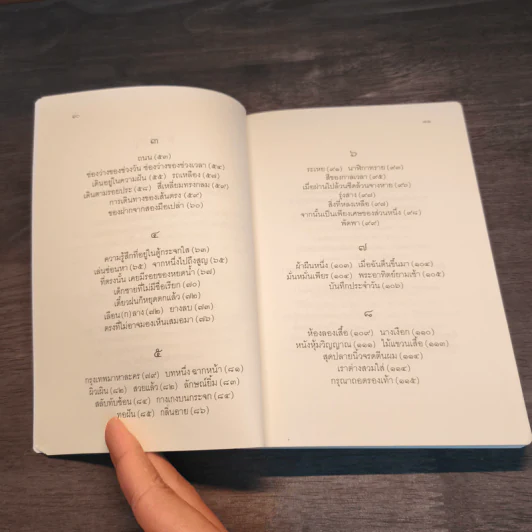 ๓
ถนน (๕๓)
ช่องว่างของช่วงวัน ช่องว่างของช่วงเวลา (๕๔)
เดินอยู่ในความฝัน (๕๕) รถเหลือง (๕๗)
เดินตามรอยประ (๕๘) สี่เหลี่ยมทรงกลม (๕๙)
การเดินทางของเส้นตรง (๕๙)
ของฝากจากสองมือเปล่า (๖๐)
๔
ความรู้สึกที่อยู่ในตู้กระจกใส (๖๓)
เล่นซ่อนหา (๖๕) จากหนึ่งไปถึงสูญ (๖๕)
ที่ตรงนั้น เคยมีรอยของหยดน้ำ (๖๗)
เด็กชายที่ไม่มีชื่อเรียก (๗๐)
เดี๋ยวฝนก็หยุดตกแล้ว (๗๒)
เลือน(ก)ลาง (๗๒) ยางลบ (๗๔)
ตรงที่ไม่อาจมองเห็นเสมอมา (๗๖)
๕
กรุงเทพมาหาละคร (๗๙) บทหนึ่ง ฉากหน้า (๘๑)
ผิวเผิน (๘๒) สวยแล้ว (๘๒) ลักษณ์ยิ้ม (๘๓)
สลับทับซ้อน (๘๔) กางเกงบนกระจก (๘๔)
ทอฝัน (๘๕) กลิ่นอาย (๘๖)
๖
ระเหย (๙๑) นาฬิกาทราย (๙๓)
สีของกาลเวลา (๙๕)
เมื่อผ่านไปล้วนขีดล้วนจางหาย (๙๖)
รุ่งสาง (๙๗)
สิ่งที่หลงเหลือ (๙๗)
จากนั้นเป็นเพียงเศษของส่วนหนึ่ง (๙๘)
พัดพา (๙๙)
๗
ผ้าผืนหนึ่ง (๑๐๓) เมื่อฉันตื่นขึ้นมา (๑๐๔)
มั่นหมั่นเพียร (๑๐๔) พระอาทิตย์ยามเช้า (๑๐๕)
บันทึกประจำวัน (๑๐๖)
๘
ห้องลองเสื้อ (๑๐๙) นางเงือก (๑๑๐)
หนังหุ้มวิญญาณ (๑๑๑) ไม้แขวนเสื้อ (๑๑๓)
สุดปลายนิ้วจรดตีนผม (๑๑๔)
เราต่างสวมใส่ (๑๑๔)
กรุณาถอดรองเท้า (๑๑๕)